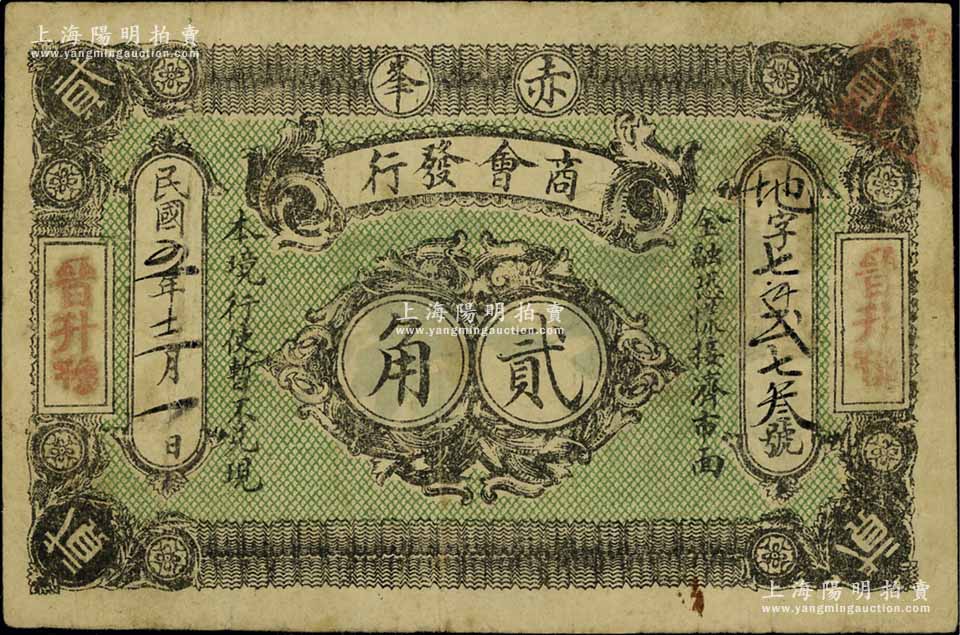 上海陽明拍賣
www.yangmingauction.com
上海陽明拍賣
www.yangmingauction.com
貳
貳
赤峯
商會發行
地字七 貳七叁號
金融 接濟市面
貳角
本境行使暫不兌現
民國五年十二月一日
晉升
晉升
上海陽明拍賣
www.yangmingauction.com
貳
貳
上海陽明拍賣
www.yangmingauction.com